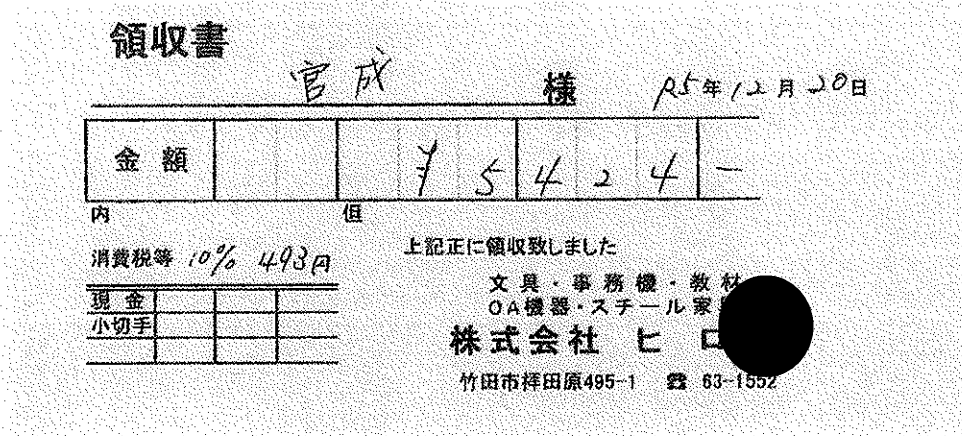 領収書
官成 様 R5年12月20日
金額 ¥5424-
内 但
消費税等 10% 493円
上記正に領収致しました
現金
小切手
文具・事務機・教材
OA機器・スチール家
株式会社 ヒロ
竹田市拝田原495-1 ☎ 63-1552